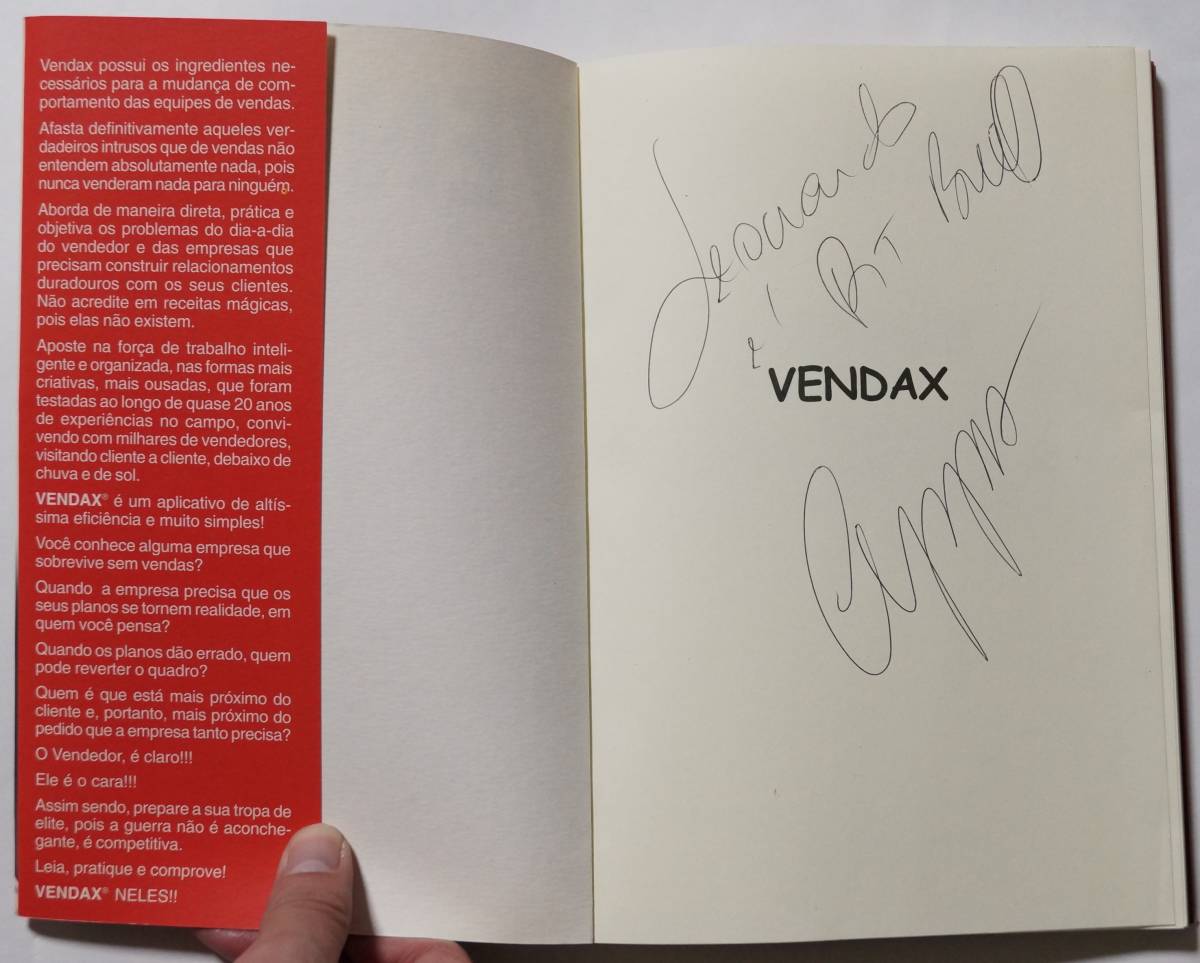 Vendax possui os ingredientes ne-
cessários para a mudança de com-
portamento das equipes de vendas.
Afasta definitivamente aqueles ver-
dadeiros intrusos que de vendas não
entendem absolutamente nada, pois
nunca venderam nada para ninguém.
Aborda de maneira direta, prática e
objetiva os problemas do dia-a-dia
do vendedor e das empresas que
precisam construir relacionamentos
duradouros com os seus clientes.
Não acredite em receitas mágicas,
pois elas não existem.
Aposte na força de trabalho inteli-
gente e organizada, nas formas mais
criativas, mais ousadas, que foram
testadas ao longo de quase 20 anos
de experiências no campo, convi-
vendo com milhares de vendedores,
visitando cliente a cliente, debaixo de
chuva e de sol.
VENDAX® é um aplicativo de altís-
sima eficiência e muito simples!
Você conhece alguma empresa que
sobrevive sem vendas?
Quando a empresa precisa que os
seus planos se tornem realidade, em
quem você pensa?
Quando os planos dão errado, quem
pode reverter o quadro?
Quem é que está mais próximo do
cliente e, portanto, mais próximo do
pedido que a empresa tanto precisa?
O Vendedor, é claro!!!
Ele é o cara!!!
Assim sendo, prepare a sua tropa de
elite, pois a guerra não é aconche-
gante, é competitiva.
Leia, pratique e comprove!
VENDAX® NELES!!
Leonardo
VENDAX